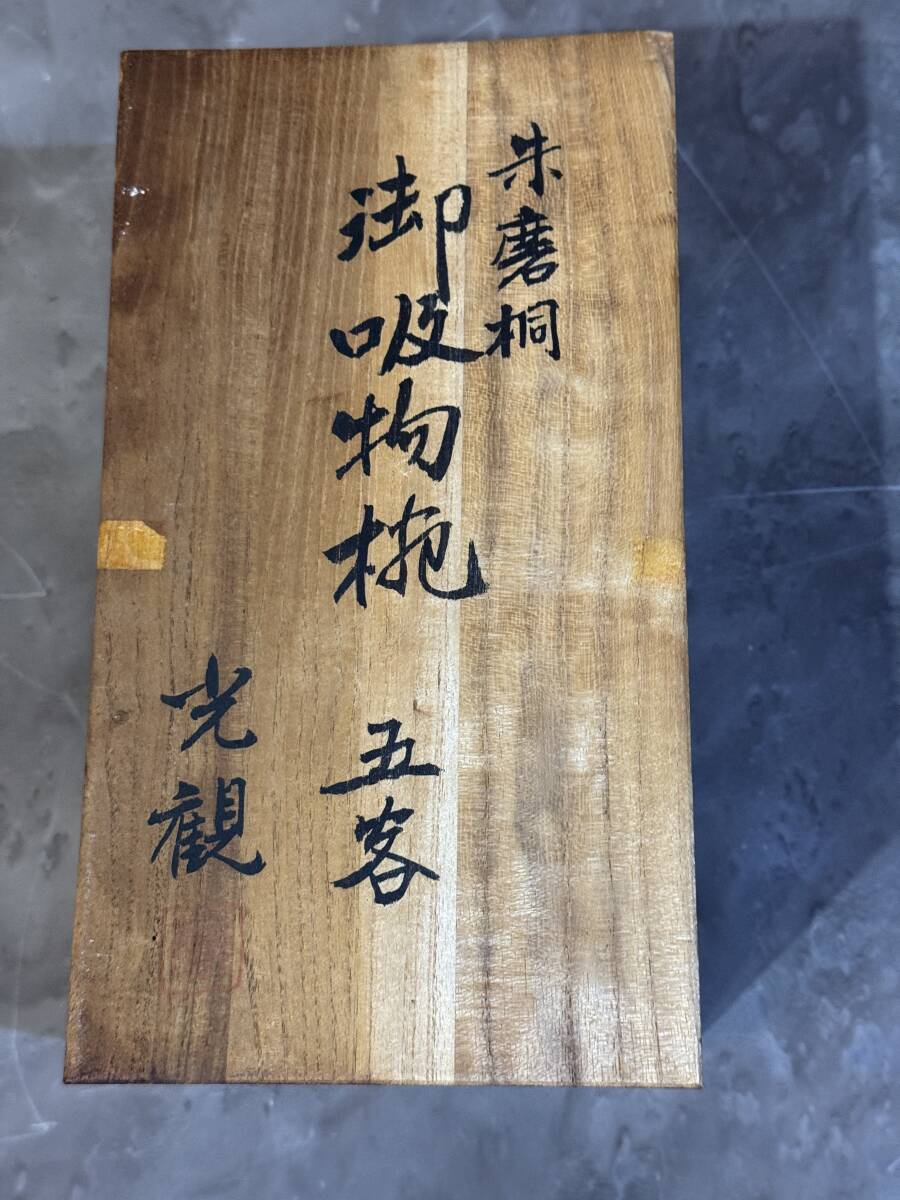 朱磨桐
御吸物椀 五客
光観